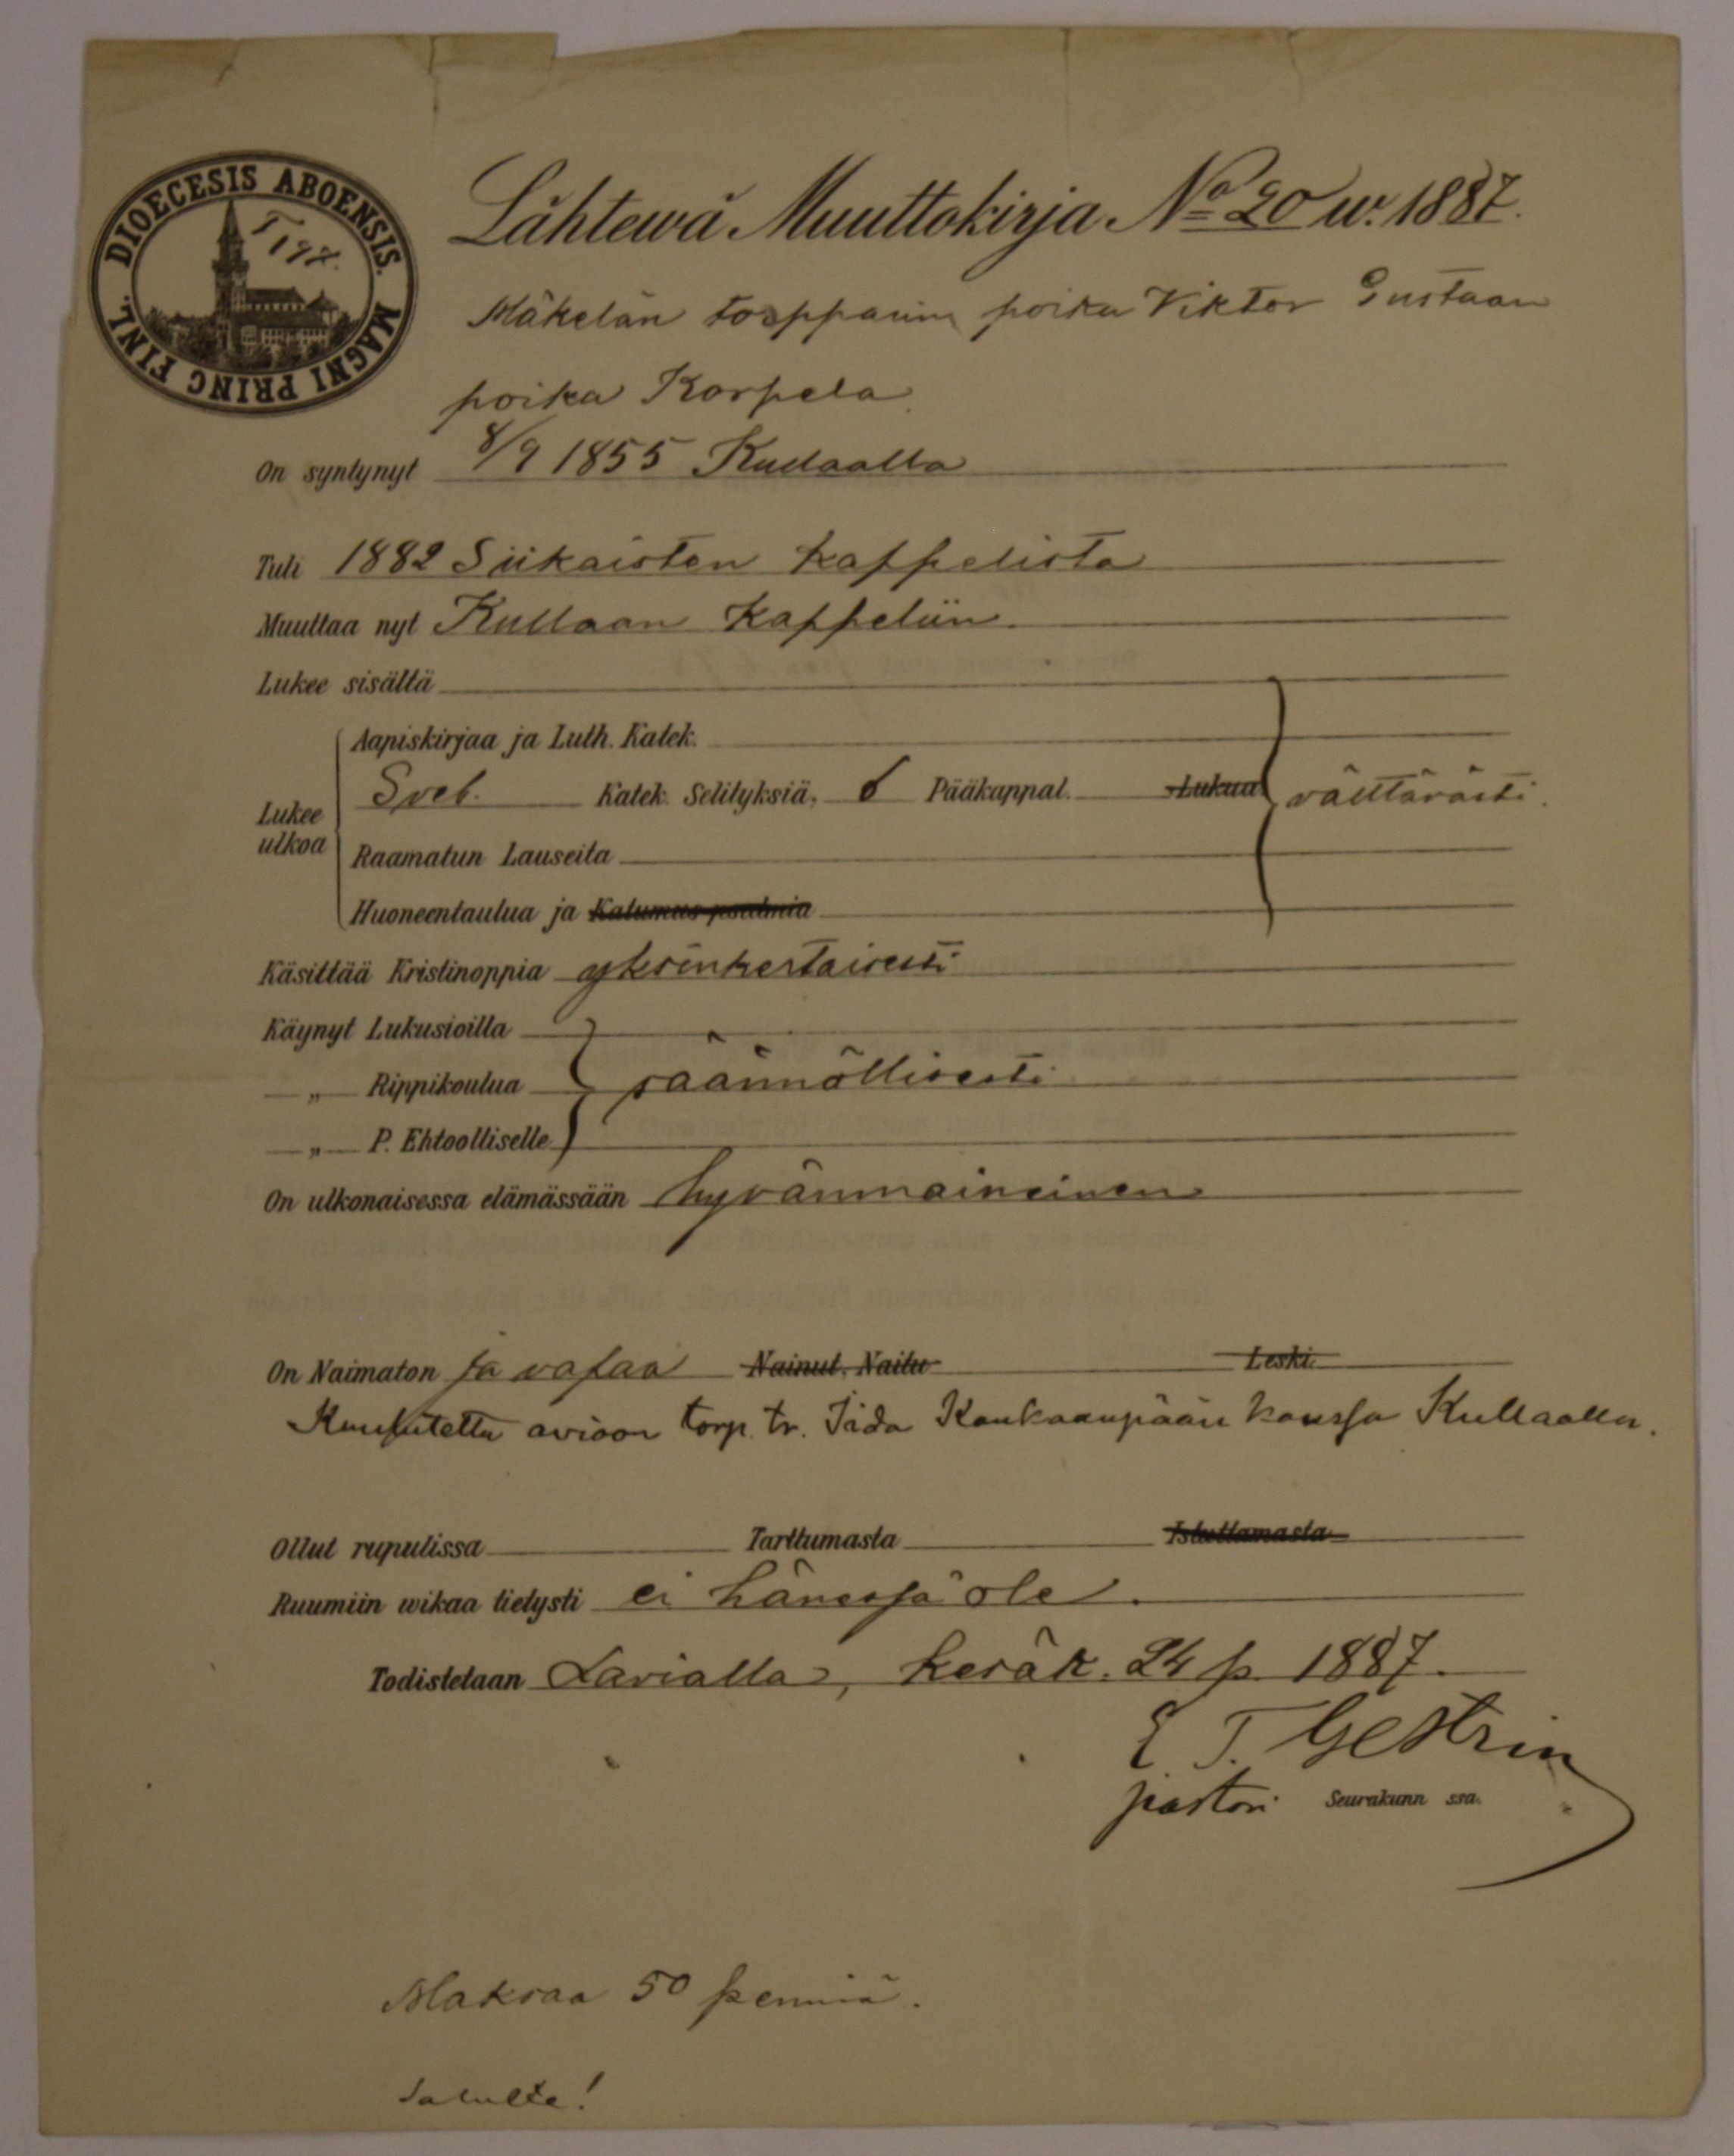 DIOECESIS ABOENSIS. MAGNI PRINC FINL.
T 197.
Lähtewä Muuttokirja No 20 w. 1887.
Mäkelän torpparin poika Viktor Gustaan
poika Korpela
On syntynyt 8/9 1855 Kullaalla
Tuli 1882 Siikaisten kappelista
Muuttaa nyt Kullaan kappeliin.
Lukee sisältä
Aapiskirjaa ja Luth. Katek.
Lukee ulkoa Sveb. Katek. Selityksiä, 6 Pääkappal. Lukua välttävästi.
Raamatun Lauseita
Huoneentaulua ja Katumus psalmia
Käsittää Kristinoppia yksinkertaisesti
Käynyt Lukusioilla
— „ — Rippikoulua säännöllisesti
— „ — P. Ehtoolliselle
On ulkonaisessa elämässään hyvänmaineinen
On Naimaton ja vapaa Nainut. Naitu Leski.
Kuulutettu avioon torp. tr. Iida Kankaanpään kanssa Kullaalla.
Ollut rupulissa Tarttumasta Istuttamasta
Ruumiin wikaa tietysti ei hänessä ole.
Todistetaan Lavialla, kesäk. 24 p. 1887.
E. T. Gestrin
pastori Seurakunn ssa.
Maksaa 50 penniä.